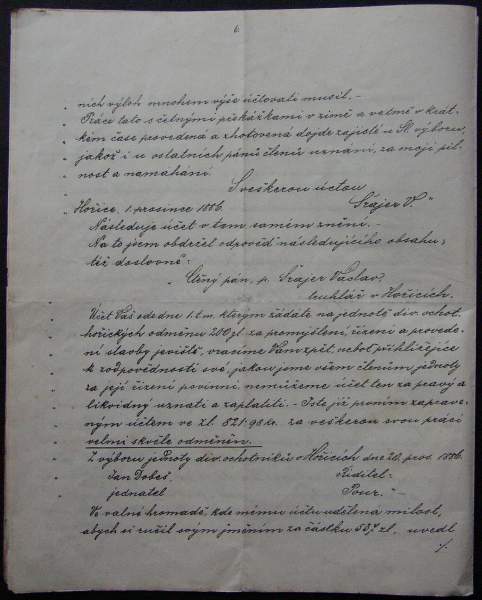 6.
ních výloh mnohem výše účtovati musil. –
Práce tato s četnými překážkami v zimě a velmě v krát-
kém čase provedená a zhotovená dojde zajisté u Sl. výboru,
jakož i u ostatních pánů členů uznání, za moji pil-
nost a namáhání.
S veškerou úctou
Hořice, 1. prosince 1886. Szajer V. "
Následuje účet v tom samém znění. –
Na to jsem obdržel odpověď následujícího obsahu,
též doslovně:
"Ctěný pán, p. Szajer Václav,
truhlář v Hořicích.
Účet Váš ode dne 1. t. m. kterým žádáte na jednotě div. ochot.
hořických odměnu 200 zl. za promyšlení, řízení a provede-
ní stavby jeviště, vracíme Vám zpět, neboť přihlížejíce
k zodpovědnosti své, jakou jsme všem členům jednoty
za její řízení povinni, nemůžeme účet ten za pravý a
likvidný uznati a zaplatiti. – Jste již prvním zaprave-
ným účtem ve zl. 821·98 kr. za veškerou svou práci
velmi skvěle odměněn.
Z výboru jednoty div. ochotníků v Hořicích dne 20. pros. 1886.
Jan Dobeš, Ředitel:
jednatel Pour. " –
Ve valné hromadě, kde mému účtu udělena milost,
abych si ručil svým jměním za částku 537 zl., uvedl
./.